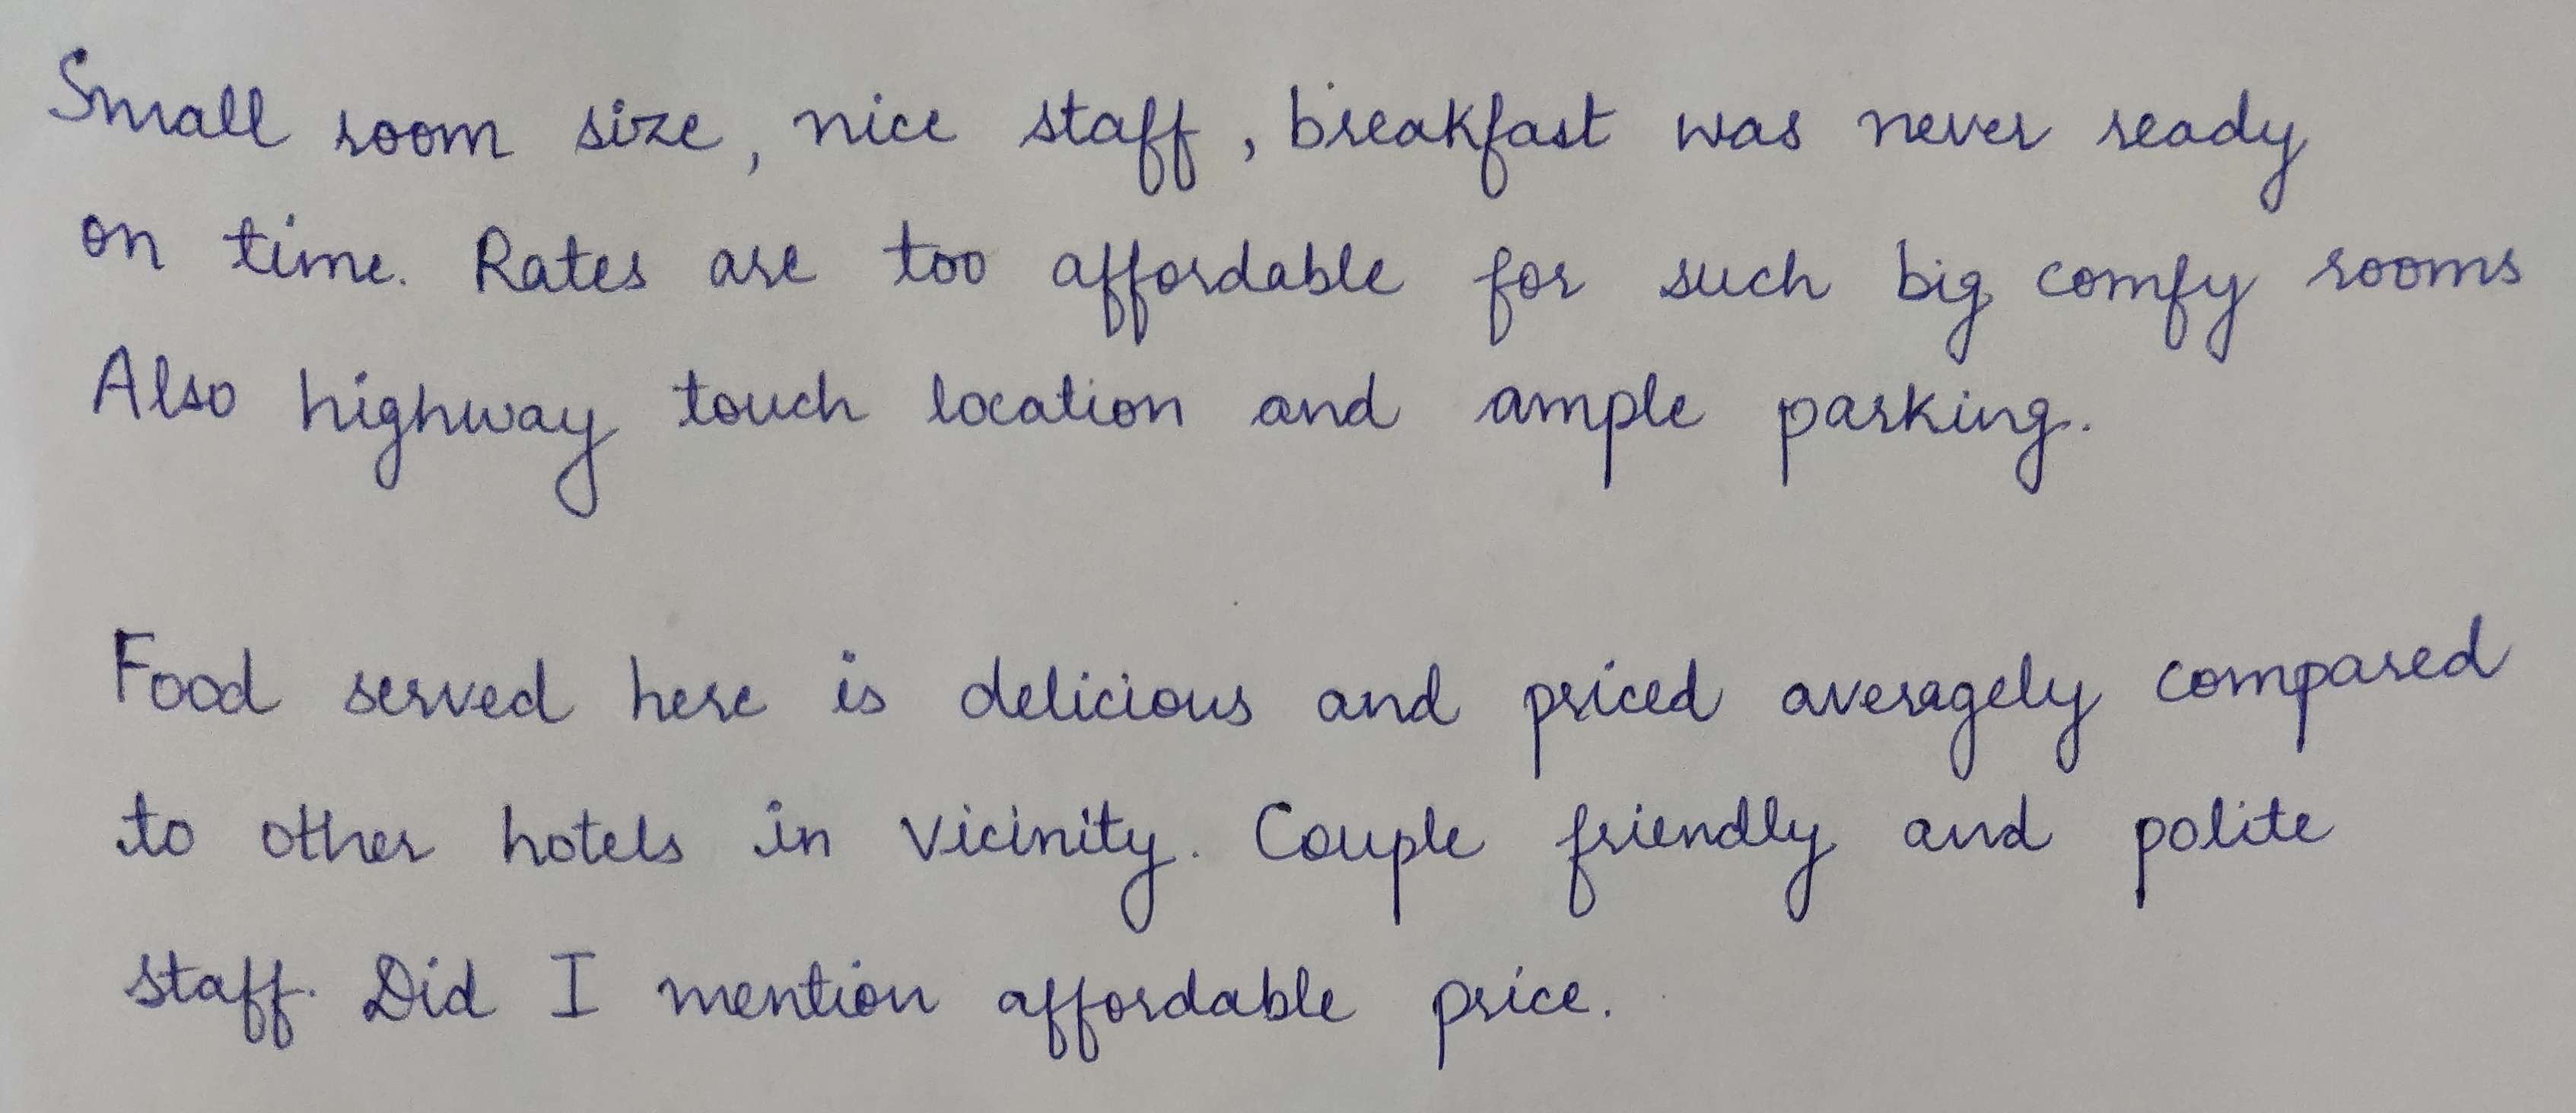 Small room size, nice staff, breakfast was never ready
on time. Rates are too affordable for such big comfy rooms
Also highway touch location and ample parking.
Food served here is delicious and priced averagely compared
to other hotels in vicinity. Couple friendly and polite
staff. Did I mention affordable price.